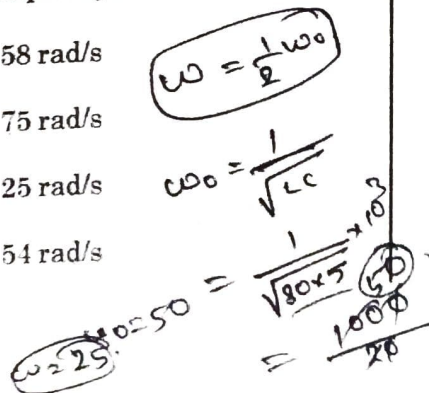 58 rad/s
75 rad/s
25 rad/s
54 rad/s
ω = 1/2 ω₀
ω₀ = 1/√LC
= 1/√80×5 × 10³
= 1000/20
50
ω₀=50
ω=25.